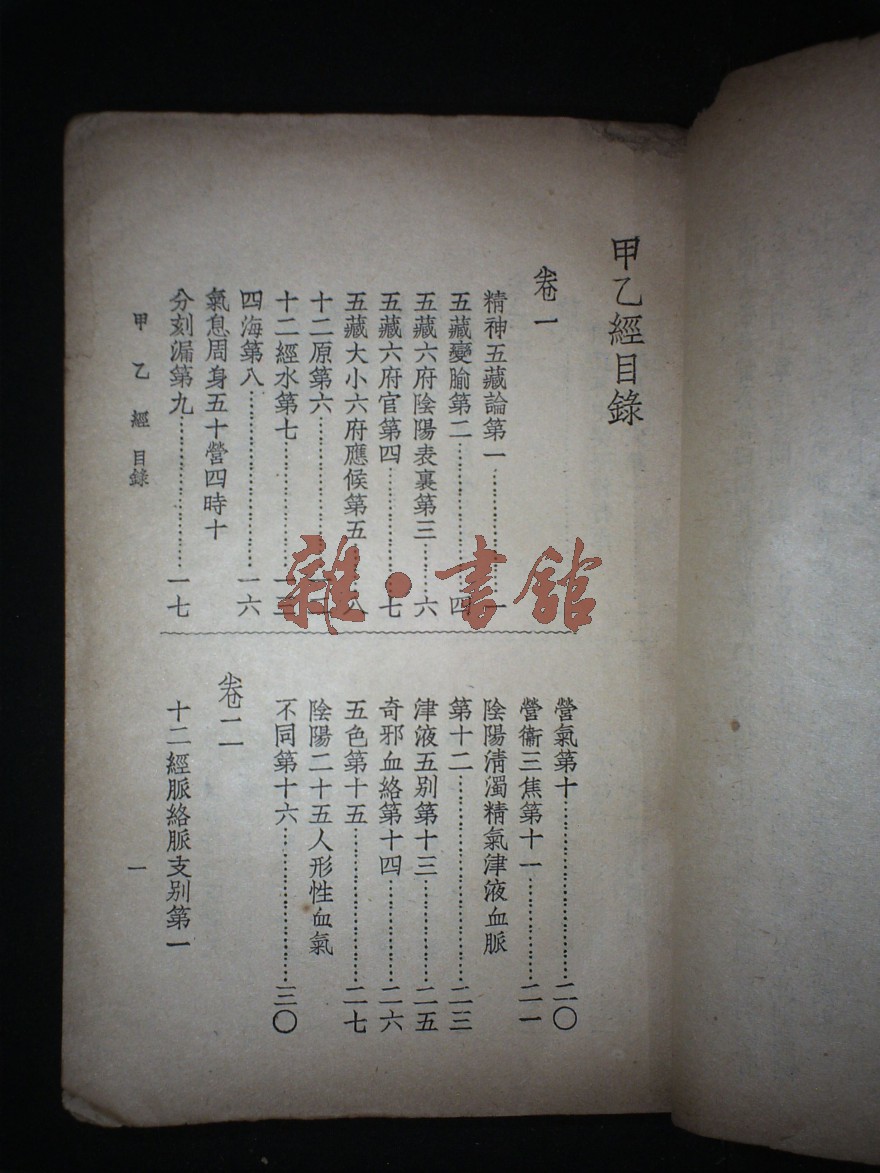 甲乙經目錄
卷一
精神五藏論第一……一
五藏變腧第二……四
五藏六府陰陽表裏第三……六
五藏六府官第四……七
五藏大小六府應候第五……八
十二原第六……
十二經水第七……一三
四海第八……一六
氣息周身五十營四時十
分刻漏第九……一七
營氣第十……二〇
營衞三焦第十一……二一
陰陽淸濁精氣津液血脈
第十二……二三
津液五別第十三……二五
奇邪血絡第十四……二六
五色第十五……二七
陰陽二十五人形性血氣
不同第十六……三〇
卷二
十二經脈絡脈支別第一
甲乙經目錄
一
雜·書館